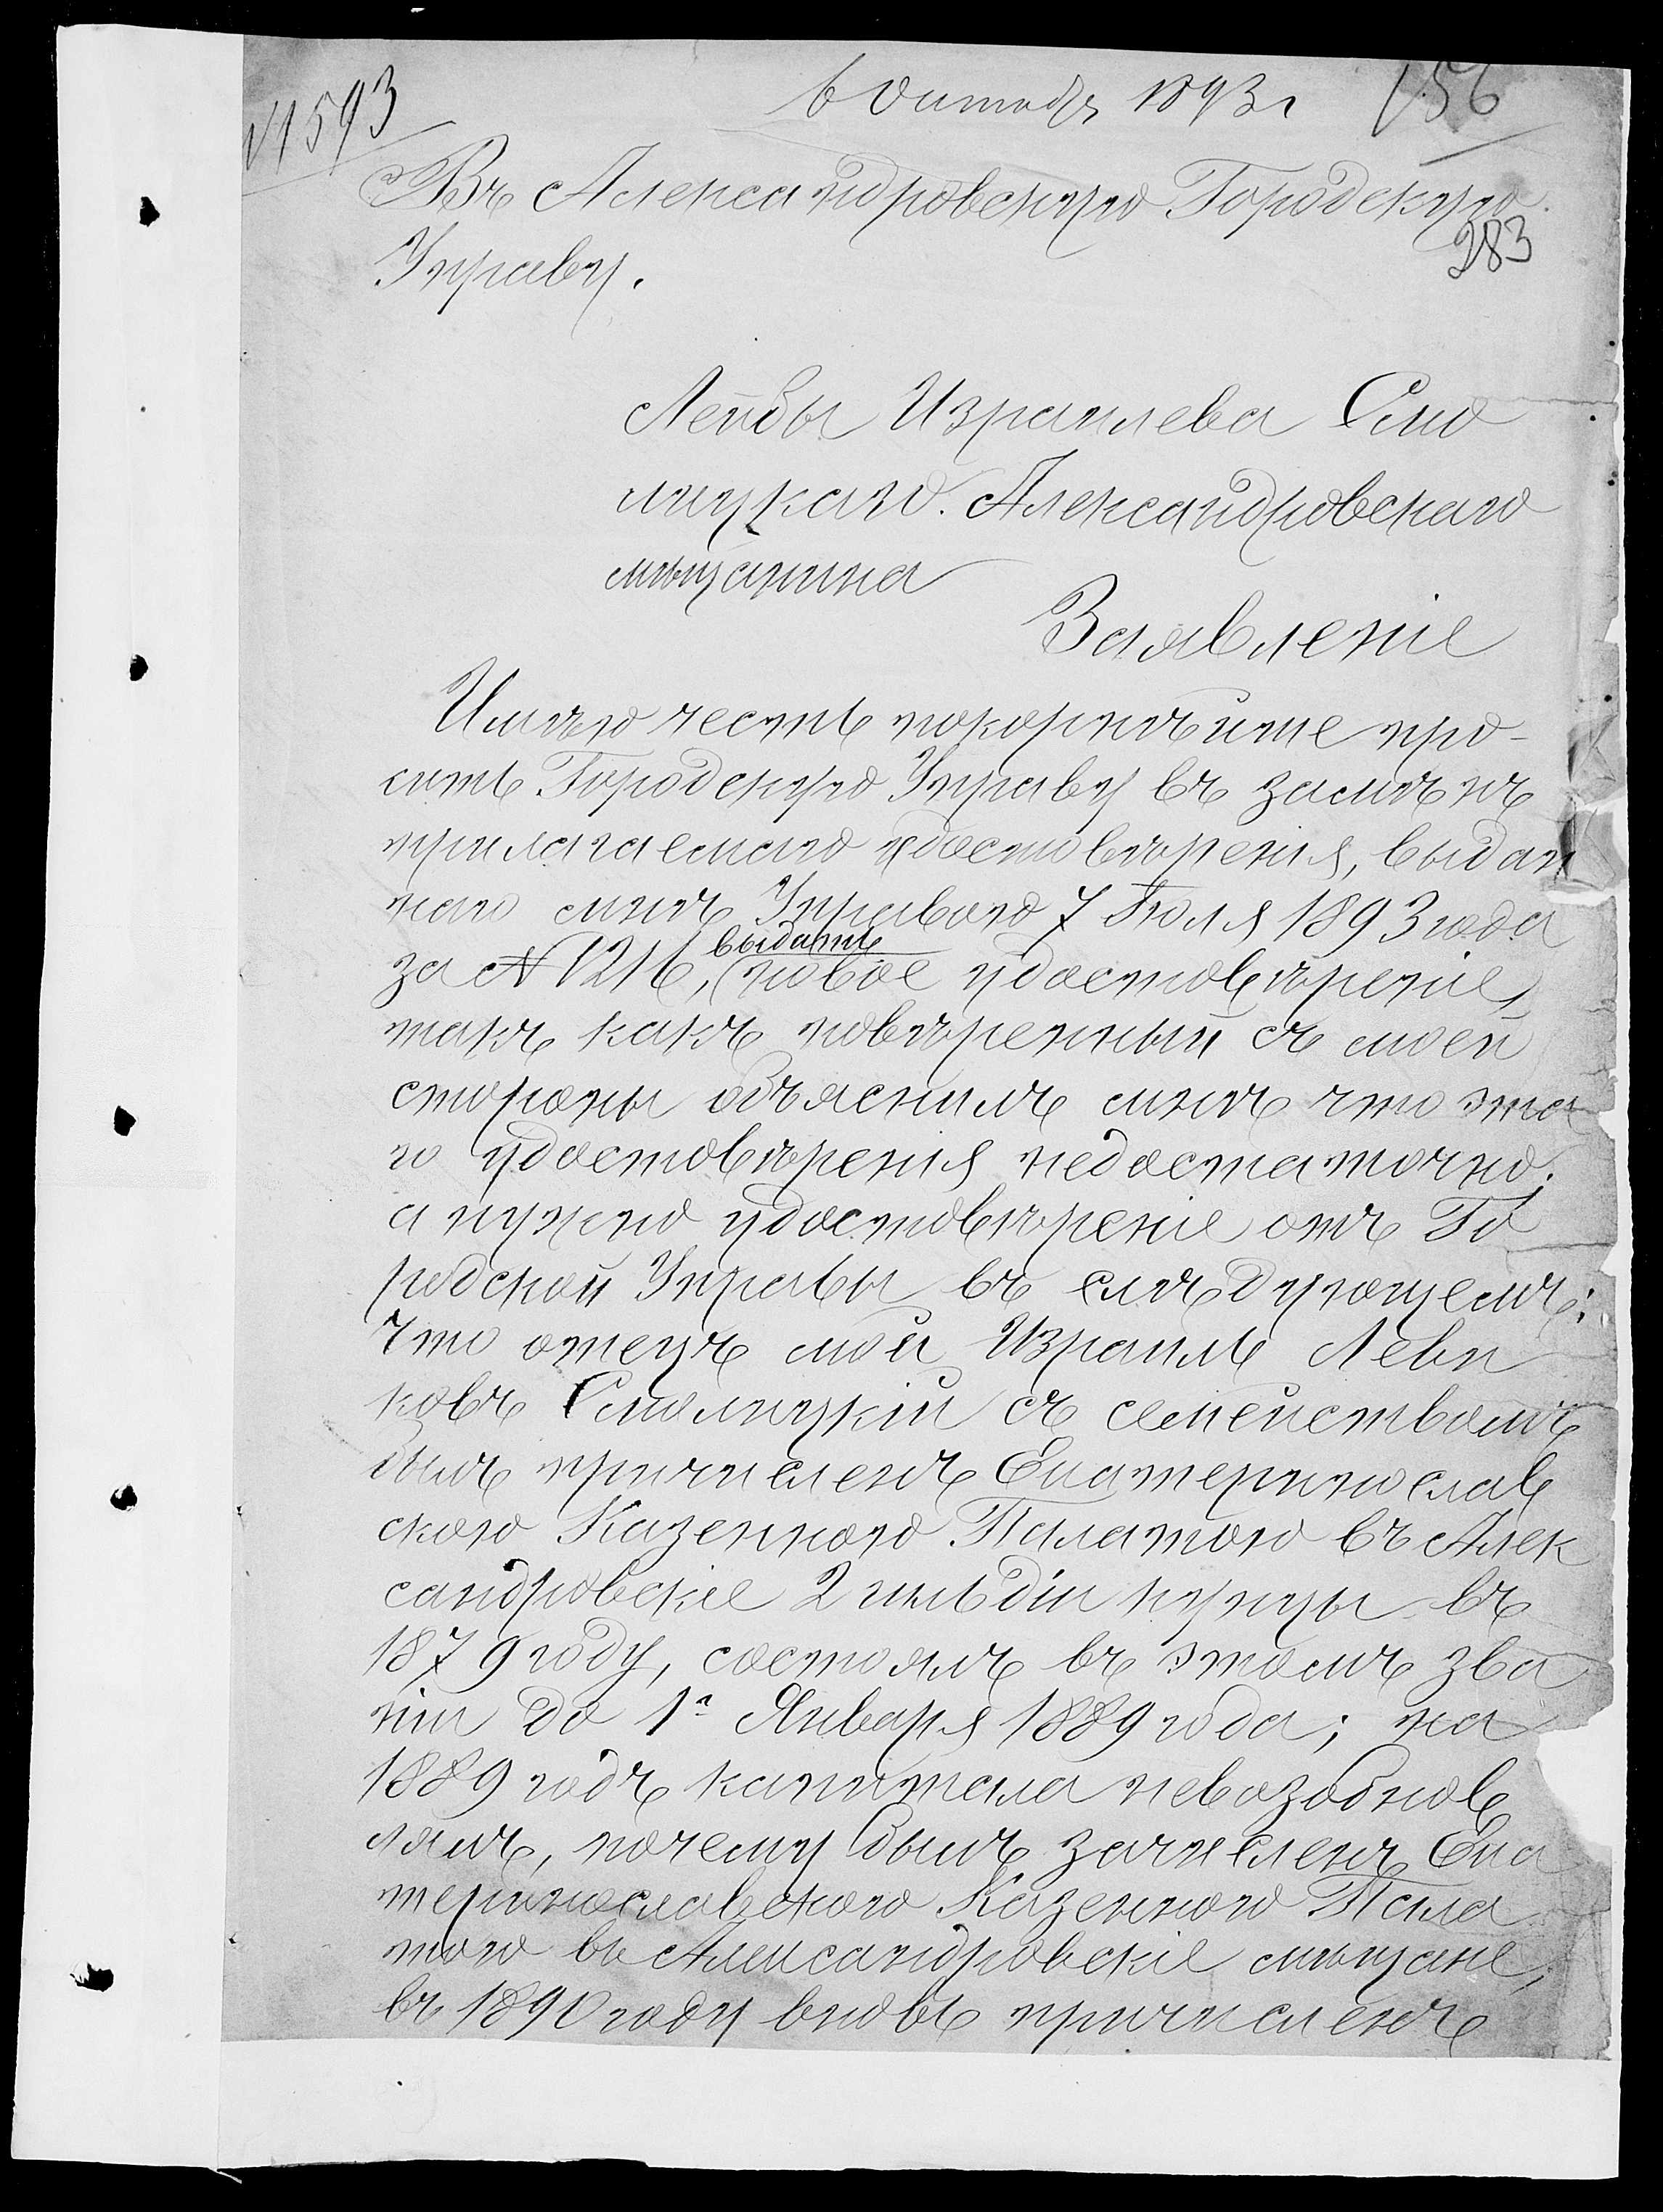 №1593
6 Октябр 1893 г
156
Въ Александровскую Городскую
283
Управу.
Лейбы Израилева Смо
лицкаго. Александровскаго
мѣщанина
Заявленіе
Имѣю честь покорнѣйше про-
сить Городскую Управу въ замѣнъ
прилагаемаго удостовѣренія, выдан
наго мнѣ Управою 7 Іюля 1893 года
выдать
за № 1216, (новое удостовѣреніе,
такъ какъ повѣренный съ моей
стороны объяснилъ мнѣ что эта
го удостовѣренія недостаточно,
а нужно удостовѣреніе отъ Го
родской Управы въ слѣдующемъ:
что отецъ мой Израиль Леви
ковъ Смолицкій съ семействомъ
былъ причисленъ Екатеринослав
скою Казенною Палатою въ Алек
сандровскіе 2 гильдіи купцы въ
1879 году, состоялъ въ этомъ зва
ніи до 1го Января 1889 года; на
1889 годъ капитала невозобнов
лялъ, почему былъ зачисленъ Ека
теринославскою Казенною Пала
тою въ Александровскіе мѣщане,
въ 1890 году вновь причисленъ